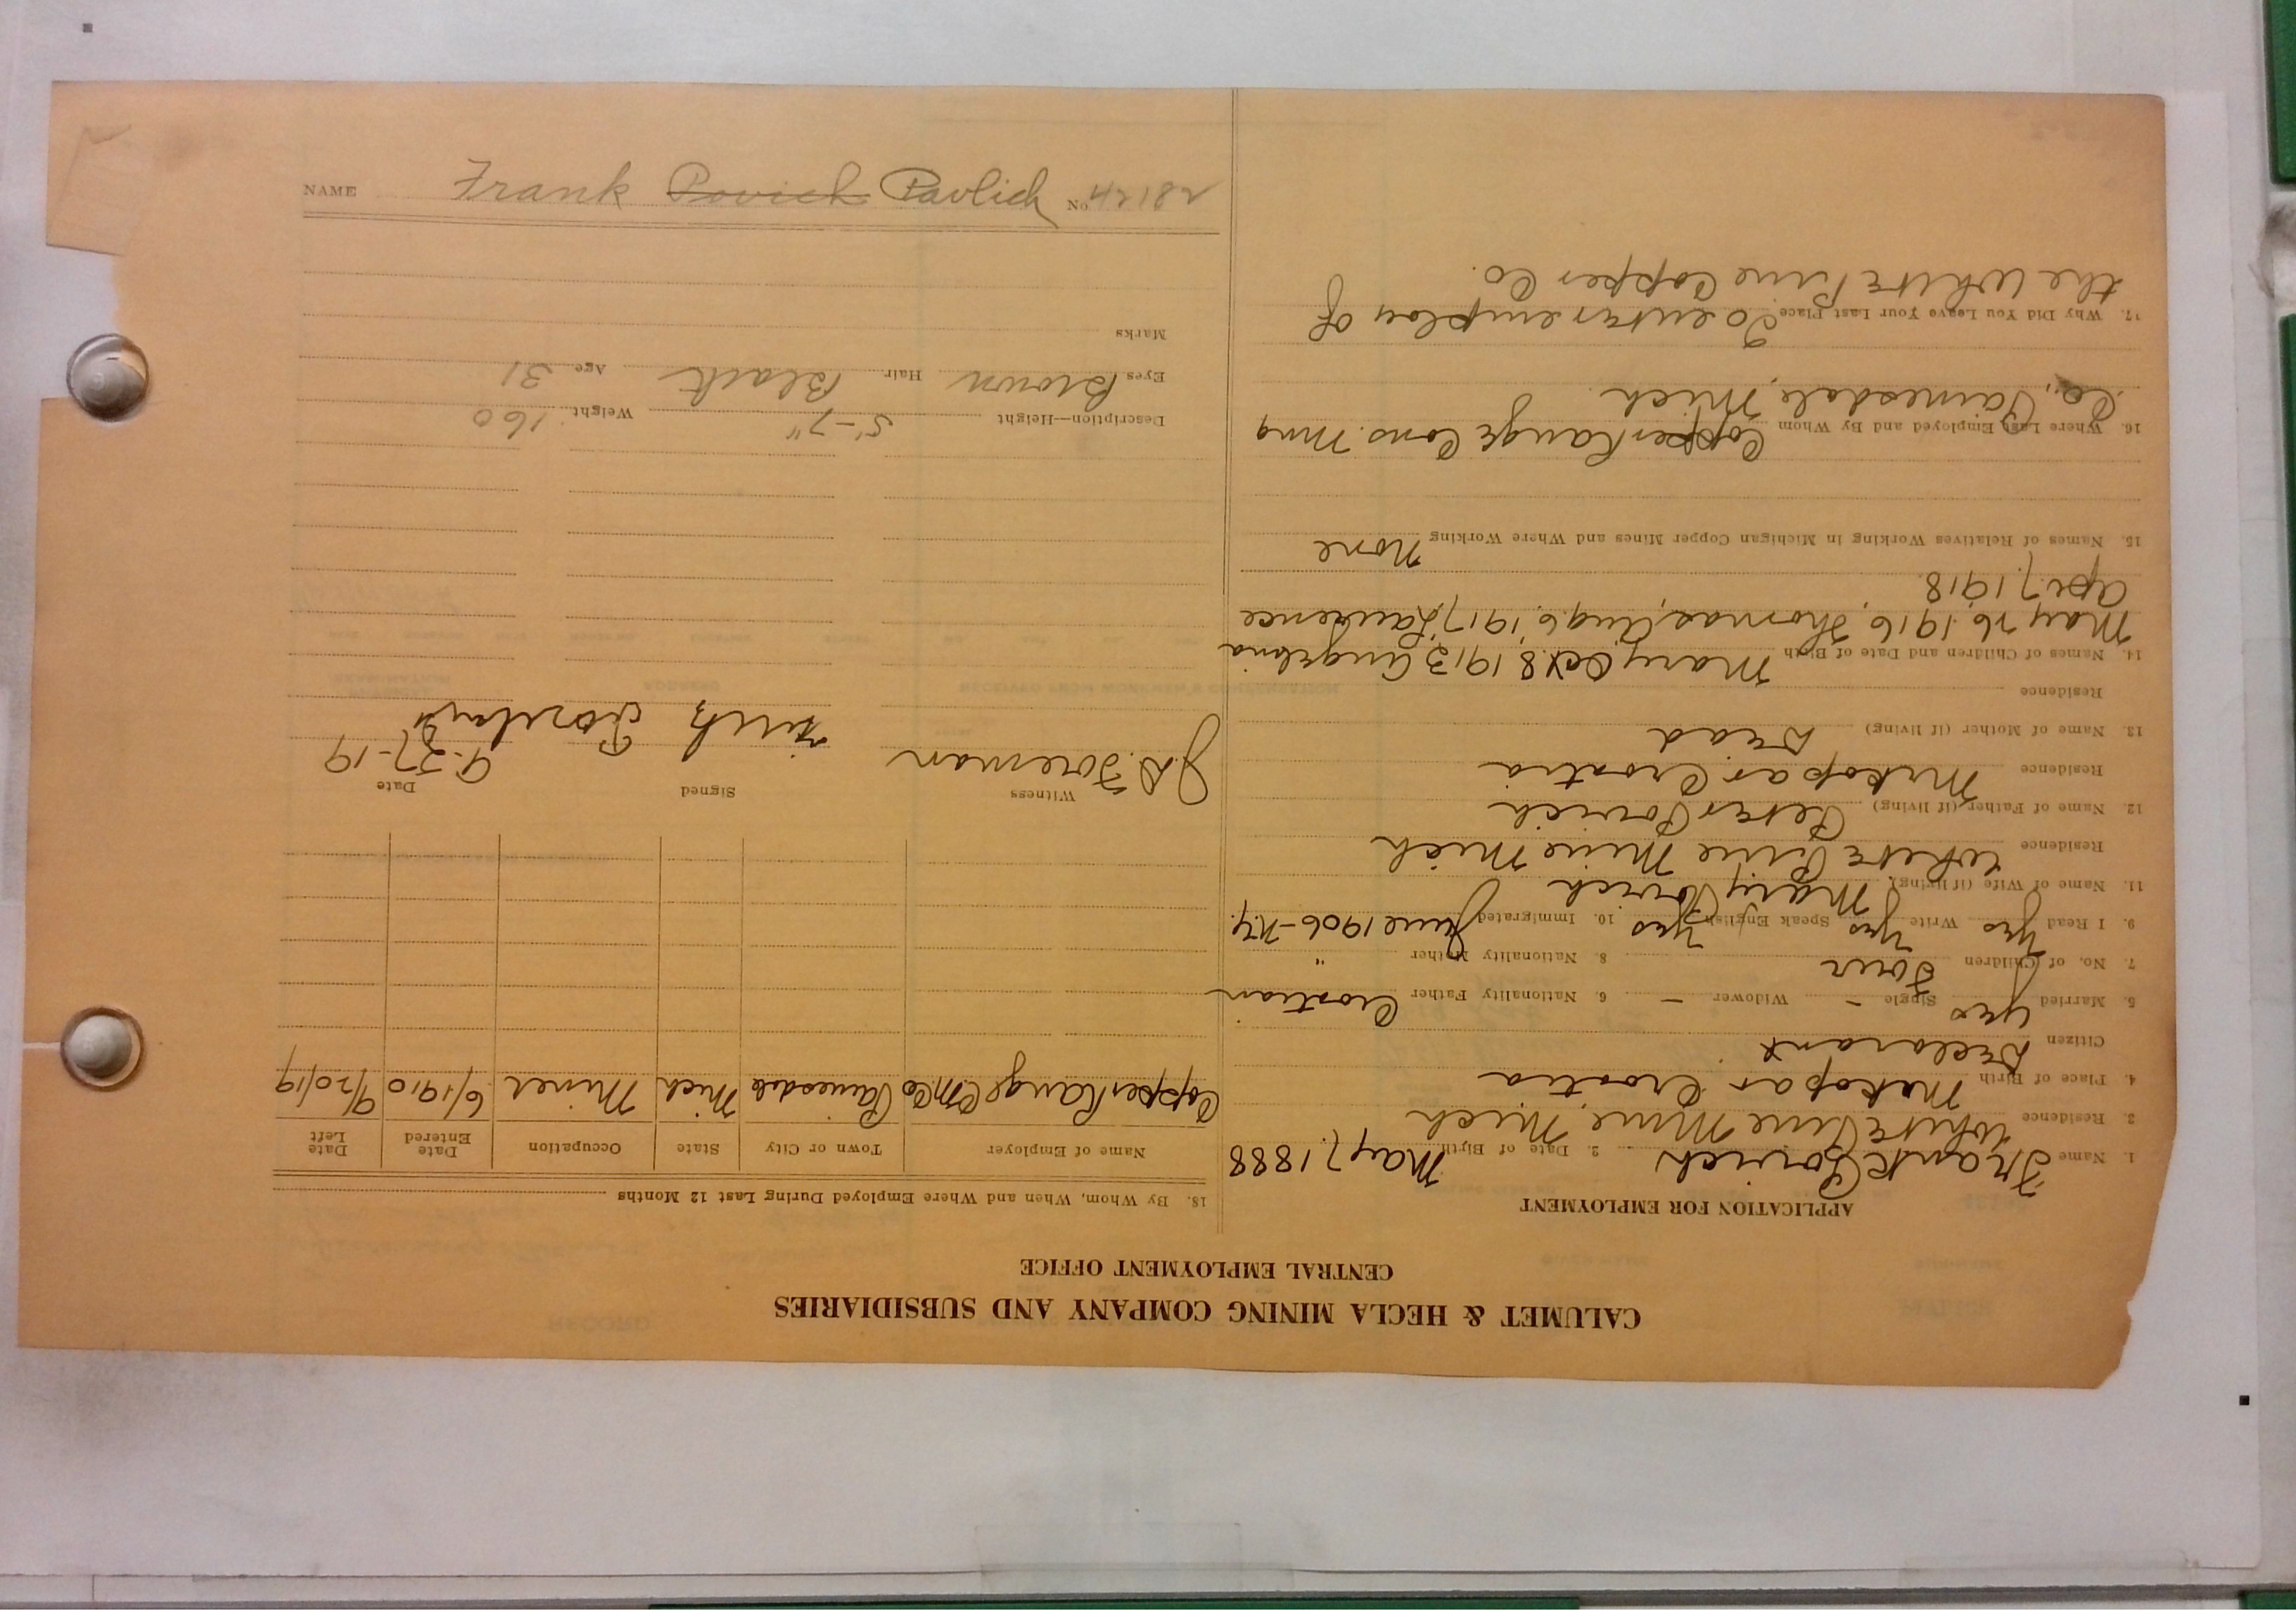 CALUMET & HECLA MINING COMPANY AND SUBSIDIARIES
CENTRAL EMPLOYMENT OFFICE
APPLICATION FOR EMPLOYMENT
1. Name Frank Povich 2. Date of Birth May 7, 1888
3. Residence White Pine Mine, Mich
4. Place of Birth Mrkopar Croatia
Citizen Declarant
5. Married Yes Single - Widower - 6. Nationality Father Croatian
7. No. of Children Four 8. Nationality Mother "
9. I Read Yes Write Yes Speak English Yes 10. Immigrated June 1906-N.Y.
11. Name of Wife (if living) Mary Povich
Residence White Pine Mine Mich
12. Name of Father (if living) Peter Povich
Residence Mrkopar Croatia
13. Name of Mother (if living) Dead
Residence
14. Names of Children and Date of Birth Mary Oct 8 1913 Angelina
May 26 1916, Thomas, Aug. 6, 1917, Laurence
Apr. 7, 1918
15. Names of Relatives Working in Michigan Copper Mines and Where Working None
16. Where Last Employed and By Whom Copper Range Cons. Mng
Co., Painesdale, Mich.
17. Why Did You Leave Your Last Place To enter employ of
the White Pine Copper Co.
18. By Whom, When and Where Employed During Last 12 Months
Name of Employer Town or City State Occupation Date Entered Date Left
Copper Range C M Co Painesdale Mich Miner 6/1910 9/20/19
Witness Signed Date
J.D. Foreman 9-27-19
Description—Height 5'-7" Weight 160
Eyes Brown Hair Black Age 31
Marks
NAME Frank Povich Pavlich No. 42182